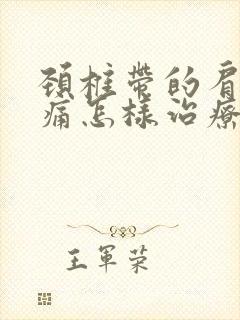 頚柱帶的肩
痛怎樣治療
王軍荣